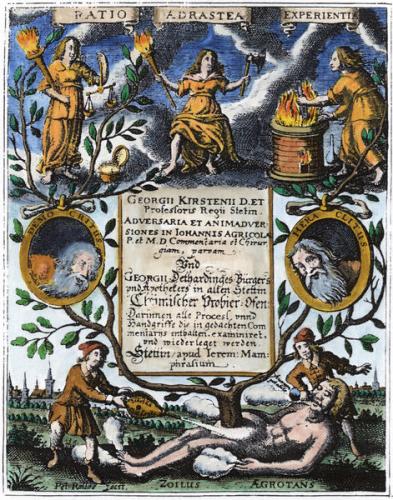 RATIO
ADRASTEA
EXPERIENTIA
DEMOCRITUS
HERACLITUS
GEORGII KIRSTENII D. ET
Professoris Regii Stetin.
ADVERSARIA ET ANIMADVER
SIONES IN IOHANNIS AGRICOLÆ
P. et M. D Commentaria et Chirur
giam, parvam
Und
GEORGII Dethardinges Bürgers
vnd Apothekers in alten Stettin
Chÿmischer Probier-Ofen:
Darinnen alle Process, vnnd
Handgriffe die in gedachten Com
mentarys enthalten, examiniret,
vnd wiederleget werden
Stetini, apud Ierem: Mam=
phrasium
ZOILUS
ÆGROTANS